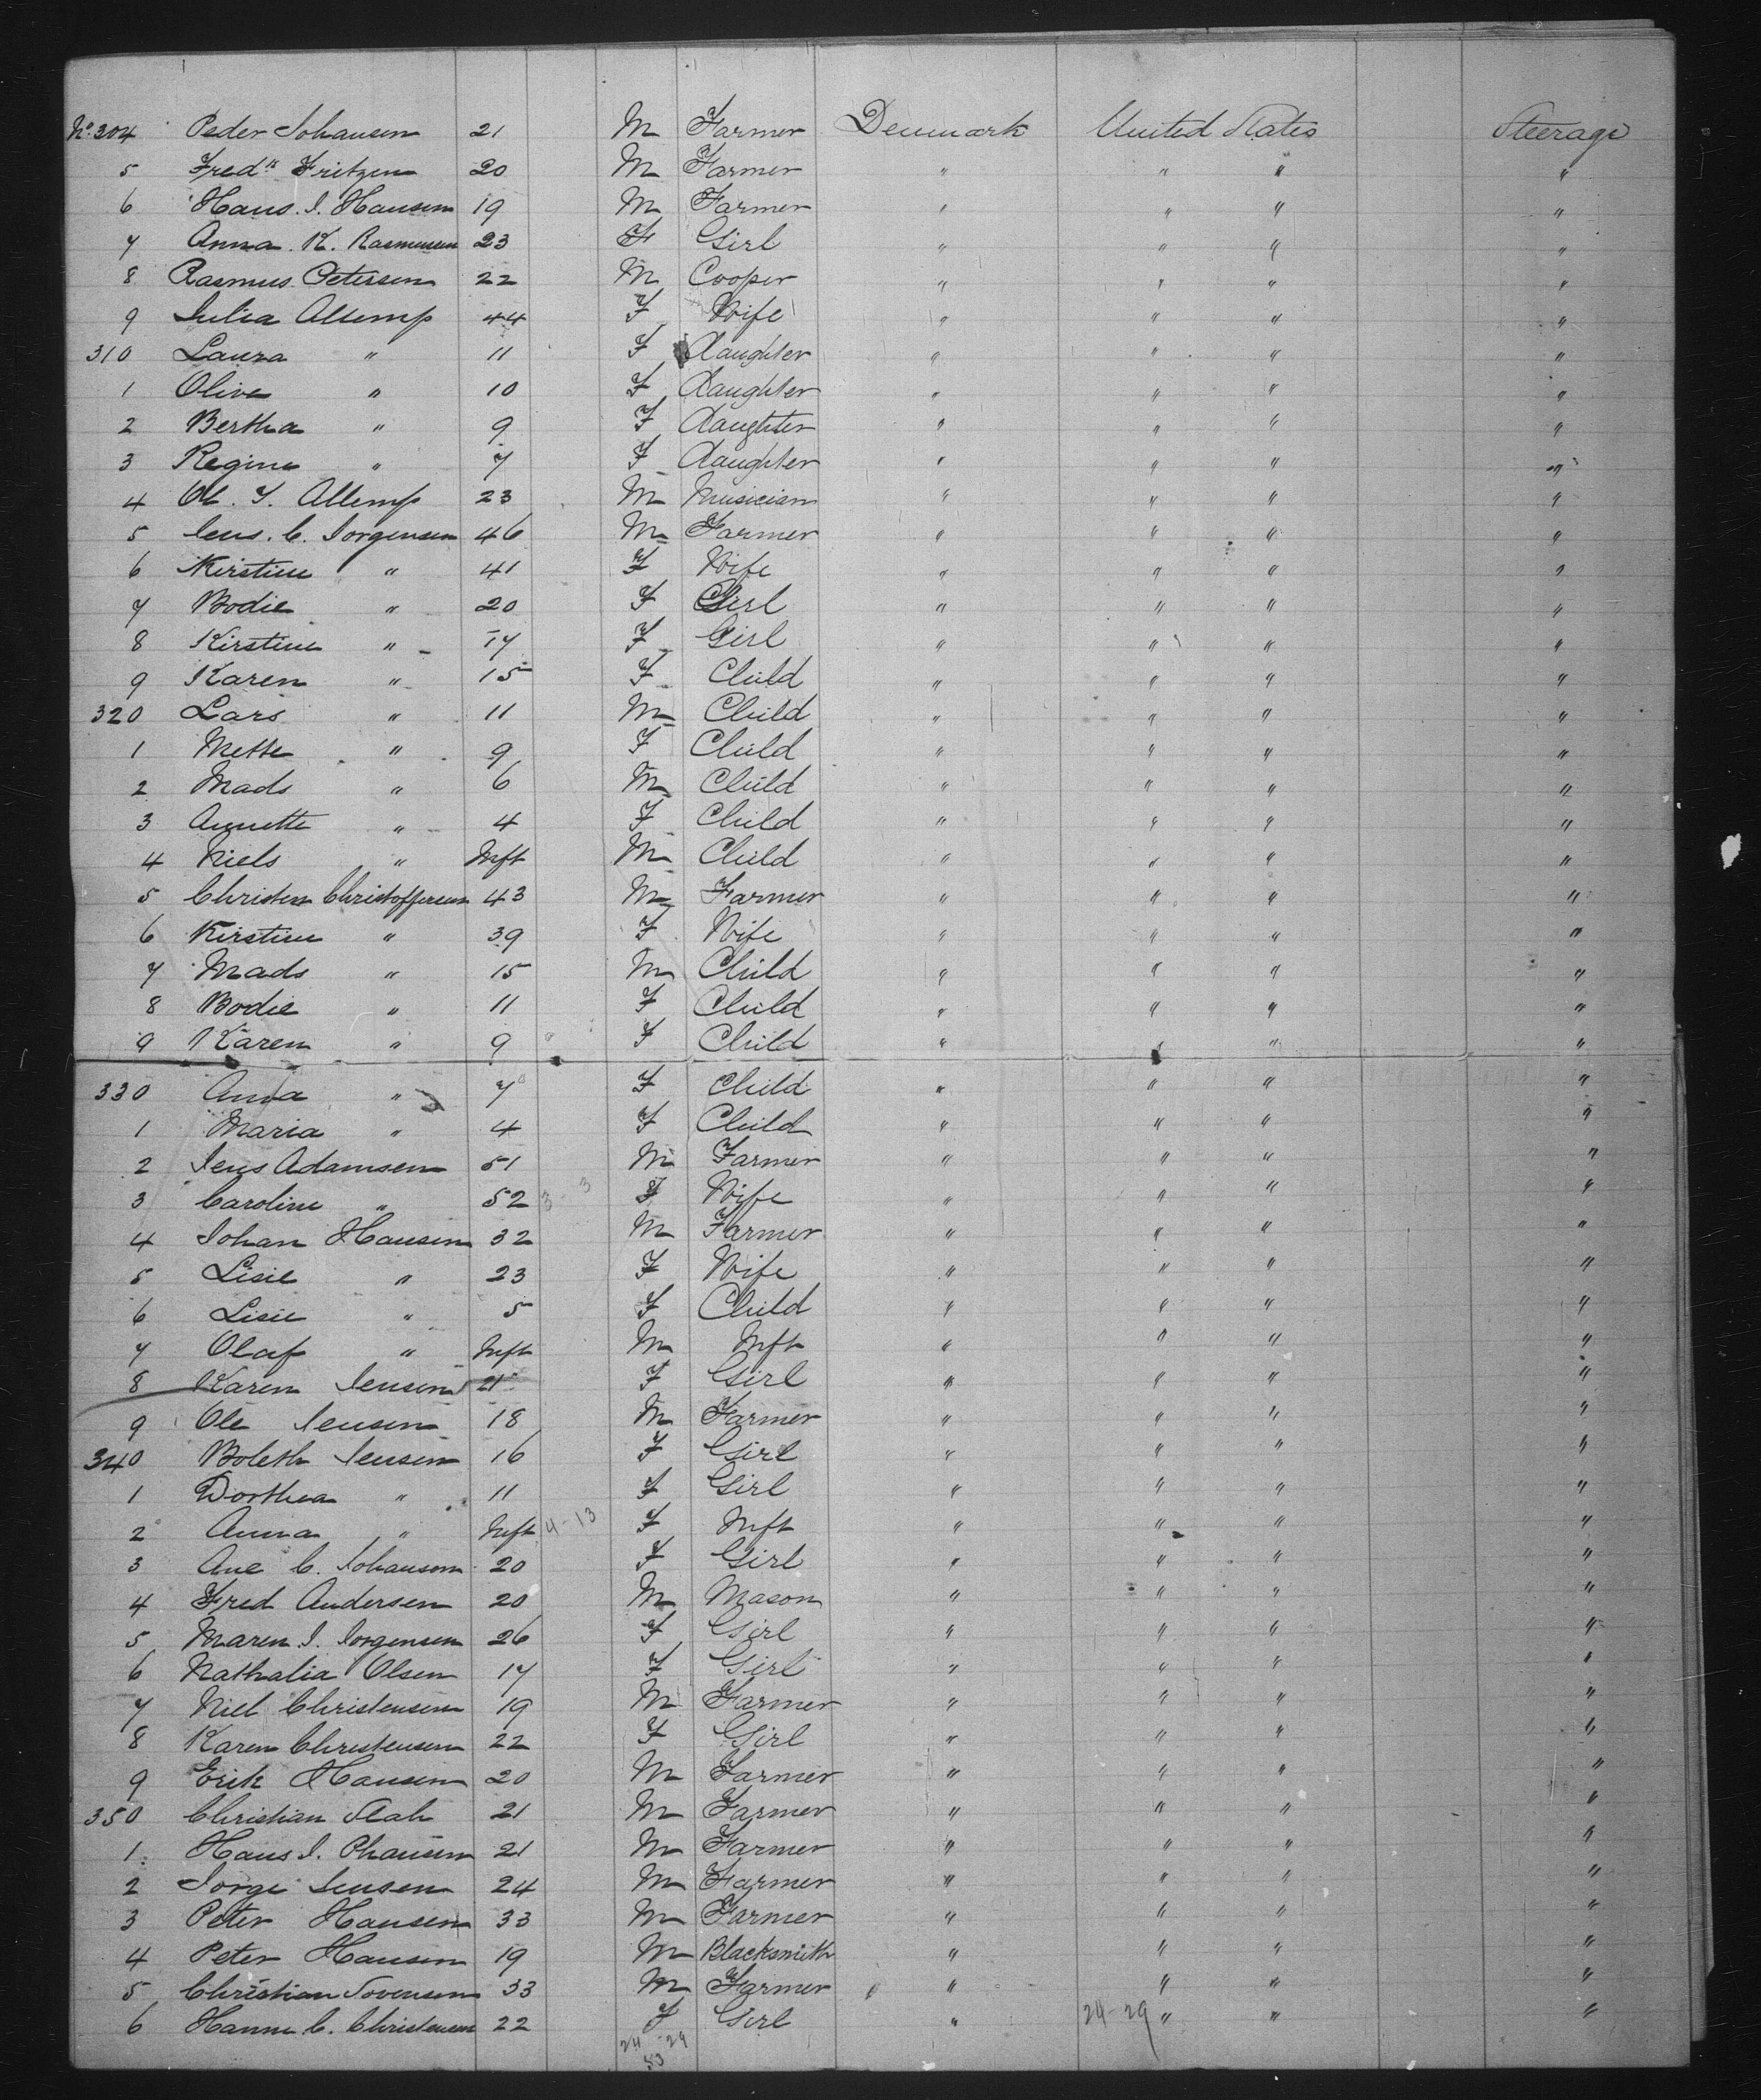 No. 304 Peder Johansen 21 M Farmer Denmark United States Steerage
5 Fredk Fritzen 20 M Farmer " " " "
6 Hans. J. Hansen 19 M Farmer " " " "
7 Anna. K. Rasmussen 23 F Girl " " " "
8 Rasmus Petersen 22 M Cooper " " " "
9 Julia Altemp 44 F Wife " " " "
310 Laura " 11 F Daughter " " " "
1 Olive " 10 F Daughter " " " "
2 Bertha " 9 F Daughter " " " "
3 Regine " 7 F Daughter " " " "
4 Altemp 23 M Musician " " " "
5 Jens. C. Jorgensen 46 M Farmer " " " "
6 Kirstine " 41 F Wife " " " "
7 Bodil " 20 F Girl " " " "
8 Kirstine " 17 F Girl " " " "
9 Karen " 15 F Child " " " "
320 Lars " 11 M Child " " " "
1 Mette " 9 F Child " " " "
2 Mads " 6 M Child " " " "
3 Annette " 4 F Child " " " "
4 Niels " Inft M Child " " " "
5 Christen Christoffersen 43 M Farmer " " " "
6 Kirstine " 39 F Wife " " " "
7 Mads " 15 M Child " " " "
8 Bodil " 11 F Child " " " "
9 Karen " 9 F Child " " " "
330 Anna " 7 F Child " " " "
1 Maria " 4 F Child " " " "
2 Jens Adamsen 51 M Farmer " " " "
3 Caroline " 52 3-3 F Wife " " " "
4 Johan Hansen 32 M Farmer " " " "
5 Lisie " 23 F Wife " " " "
6 Lisie " 5 F Child " " " "
7 Olaf " Inft M Inft " " " "
8 Karen Jensen 21 F Girl " " " "
9 Ole Jensen 18 M Farmer " " " "
340 Boleth Jensen 16 F Girl " " " "
1 Dorthea " 11 F Girl " " " "
2 Anna " Inft 4-13 F Inft " " " "
3 Ane C. Johansen 20 F Girl " " " "
4 Fred Andersen 20 M Mason " " " "
5 Maren J. Jorgensen 26 F Girl " " " "
6 Nathalia Olsen 17 F Girl " " " "
7 Niel Christensen 19 M Farmer " " " "
8 Karen Christensen 22 F Girl " " " "
9 Erik Hansen 20 M Farmer " " " "
350 Christian 21 M Farmer " " " "
1 Hans J. 21 M Farmer " " " "
2 Jorge Jensen 24 M Farmer " " " "
3 Peter Hansen 33 M Farmer " " " "
4 Peter Hansen 19 M Blacksmith " " " "
5 Christian Sorensen 33 M Farmer " " " "
6 Hanne C. Christensen 22 F Girl " 24-29 " " "
24-29
53